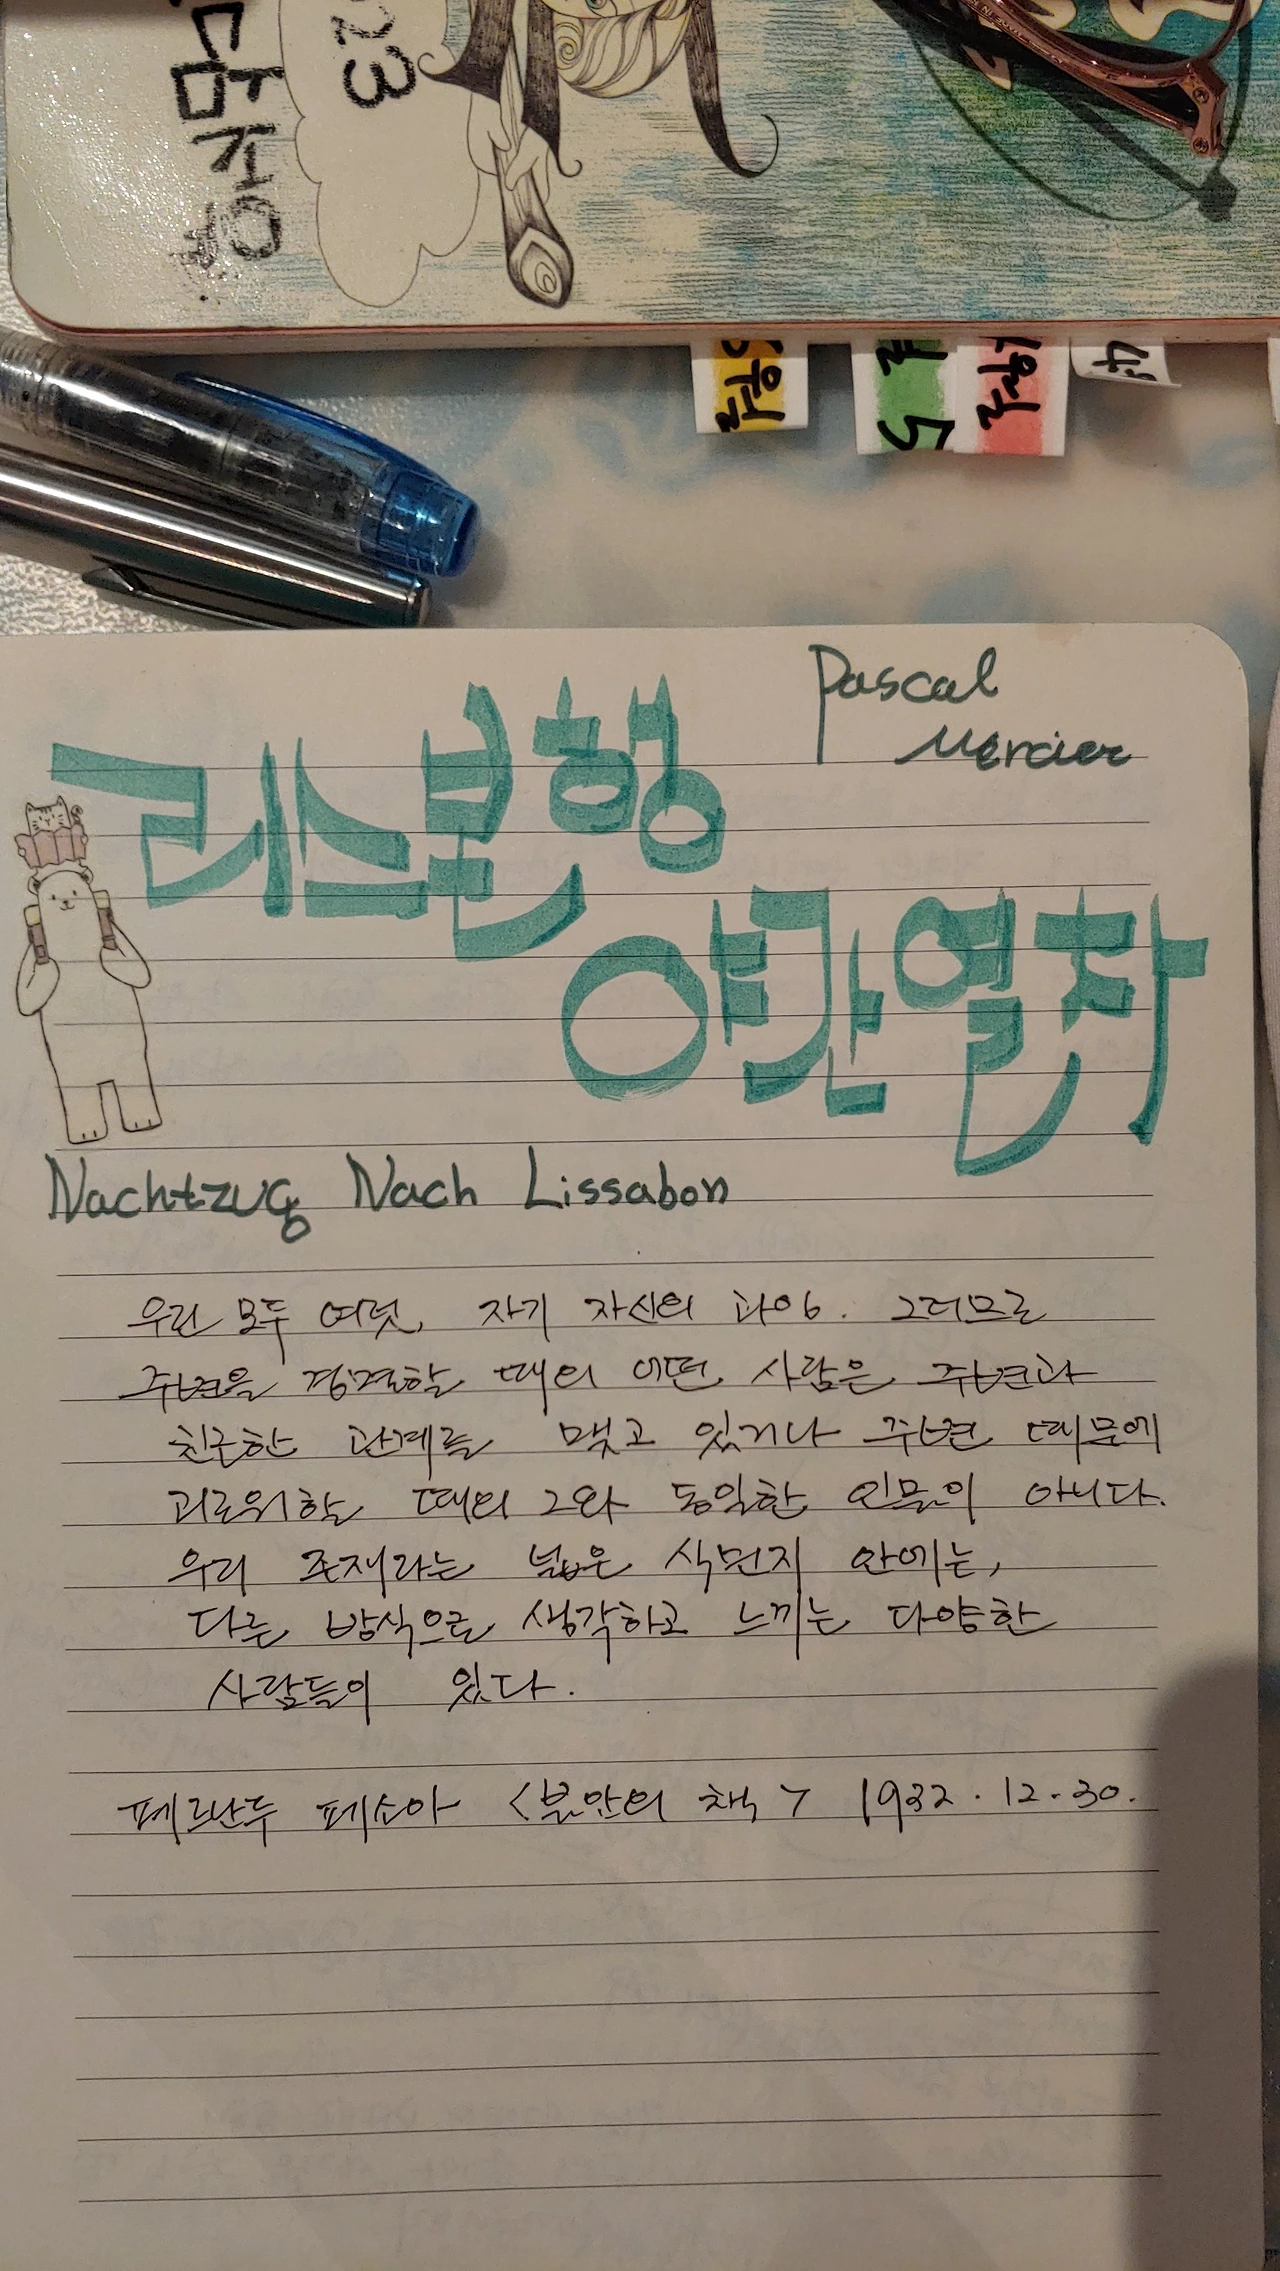 23
Pascal
Mercier
리스본행
야간열차
Nachtzug Nach Lissabon
우린 모두 여럿, 자기 자신의 과잉. 그러므로
주변을 경멸할 때의 어떤 사람은 주변과
친근한 관계를 맺고 있거나 주변 때문에
괴로워할 때의 그와 동일한 인물이 아니다.
우리 존재라는 넓은 식민지 안에는,
다른 방식으로 생각하고 느끼는 다양한
사람들이 있다.
페르난두 페소아 <불안의 책> 1932.12.30.